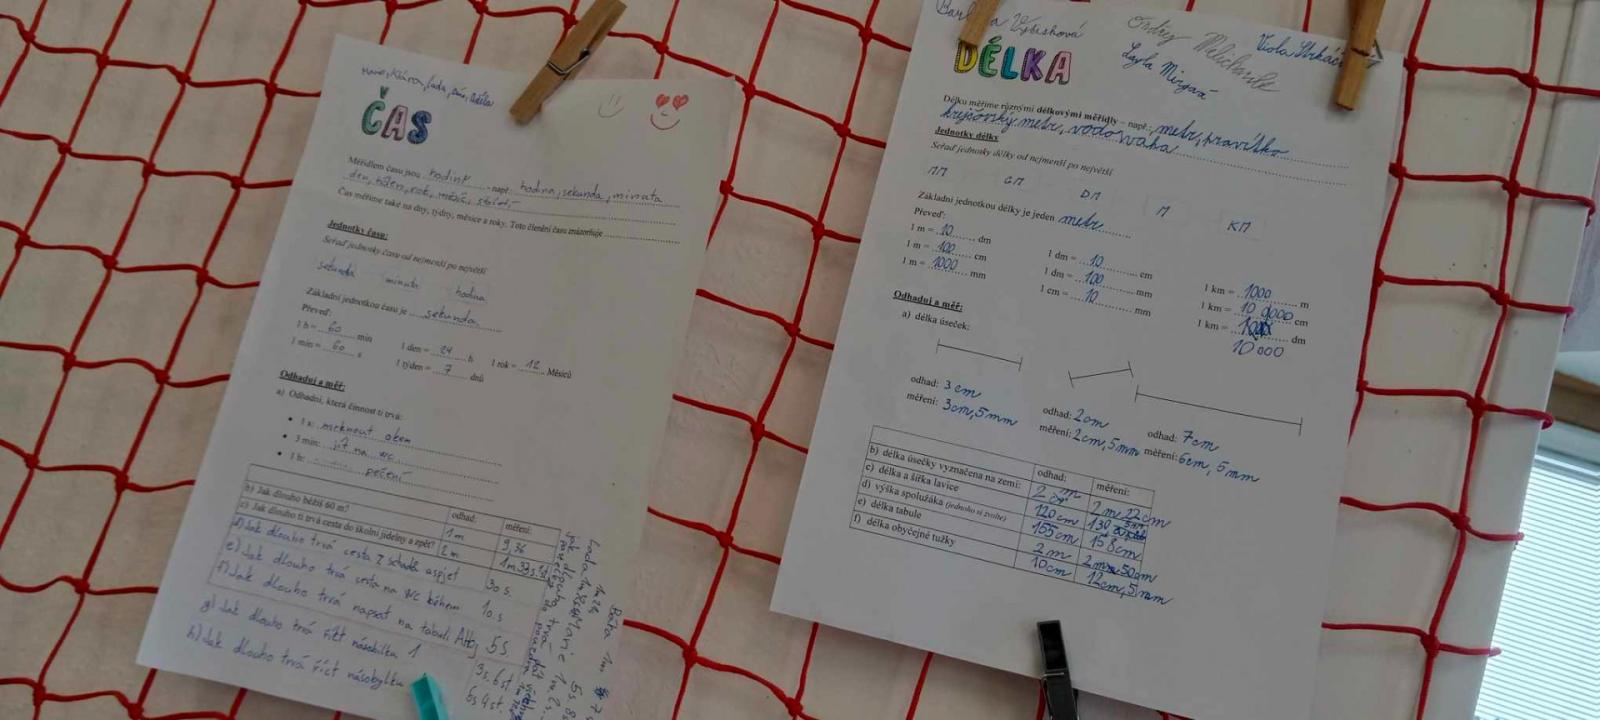 ČAS
Měřidlem času jsou hodiny - např. hodina, sekunda, minuta
den, týden, rok, měsíc, století
Čas měříme také na dny, týdny, měsíce a roky. Toto členění času znázorňuje
Jednotky času:
Seřaď jednotky času od nejmenší po největší
sekunda minuta hodina
Základní jednotkou času je sekunda
Převeď:
1 h = 60 min 1 den = 24 h 1 rok = 12 Měsíců
1 min = 60 s 1 týden = 7 dnů
Odhaduj a měř:
a) Odhadni, která činnost ti trvá:
1 s: mrknout okem
3 min: jít na wc
1 h: pečení
odhad: měření:
b) Jak dlouho běžíš 60 m? 1 m 9,36
c) Jak dlouho ti trvá cesta do školní jídelny a zpět? 2 m
d) Jak dlouho trvá cesta z schodů aspjet 30 s.
e) Jak dlouho trvá cesta na wc během 10 s
f) Jak dlouho trvá napsat na tabuli Ahoj 5 s
g) Jak dlouho trvá říct násobilku 1 3s. 6 st
h) Jak dlouho trvá říct násobylku 6s 4 st.
DÉLKA
Ondrej
Layla
Viola
Délku měříme různými délkovými měřidly – např.: metr, pravítko
krejčovský metr, vodováha
Jednotky délky
Seřaď jednotky délky od nejmenší po největší
MM CM DM M KM
Základní jednotkou délky je jeden metr
Převeď:
1 m = 10 dm 1 dm = 10 cm 1 km = 1000 m
1 m = 100 cm 1 dm = 100 mm 1 km = 10 0000 cm
1 m = 1000 mm 1 cm = 10 mm 1 km = dm
10 000
Odhaduj a měř:
a) délka úseček:
odhad: 3 cm odhad: 2 cm odhad: 7 cm
měření: 3 cm, 5 mm měření: 2 cm, 5 mm měření: 6 cm, 5 mm
odhad: měření:
b) délka úsečky vyznačena na zemi: 2 m 2 m 22 cm
c) délka a šířka lavice 120 cm 130
d) výška spolužáka (jednoho si zvolte) 155 cm 158 cm
e) délka tabule 2 m 2 m 50 cm
f) délka obyčejné tužky 10 cm 12 cm, 5 mm